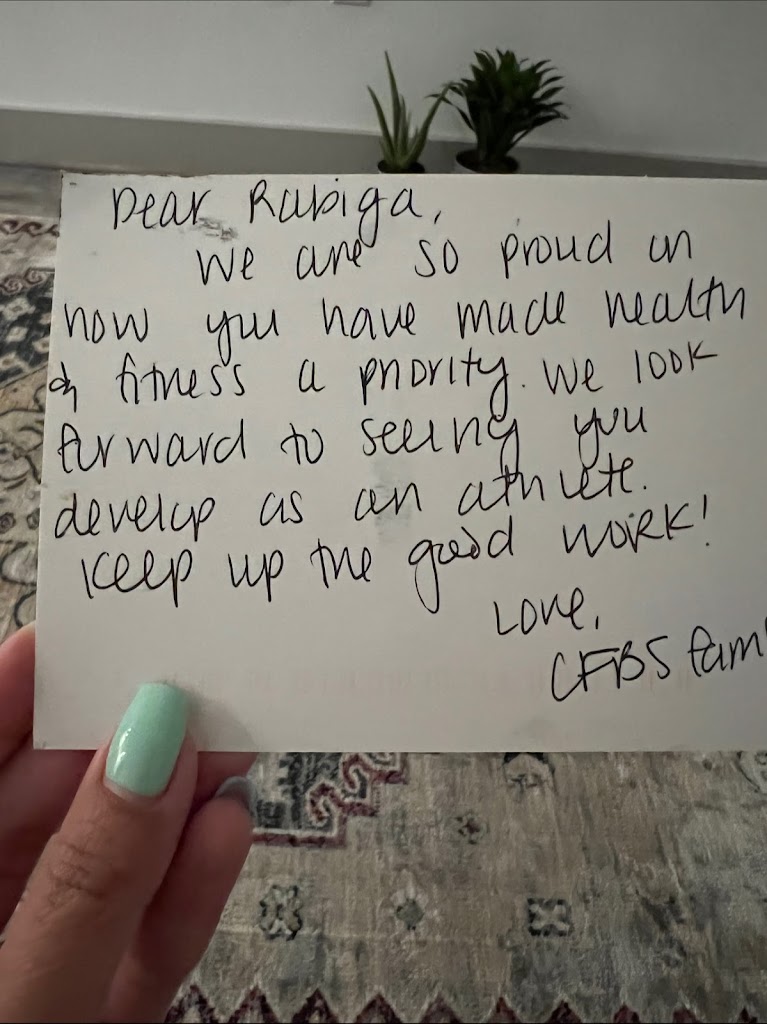 Dear Rabiga,
We are so proud on
how you have made health
& fitness a priority. We look
forward to seeing you
develop as an athlete.
Keep up the good work!
Love,
CFBS fam